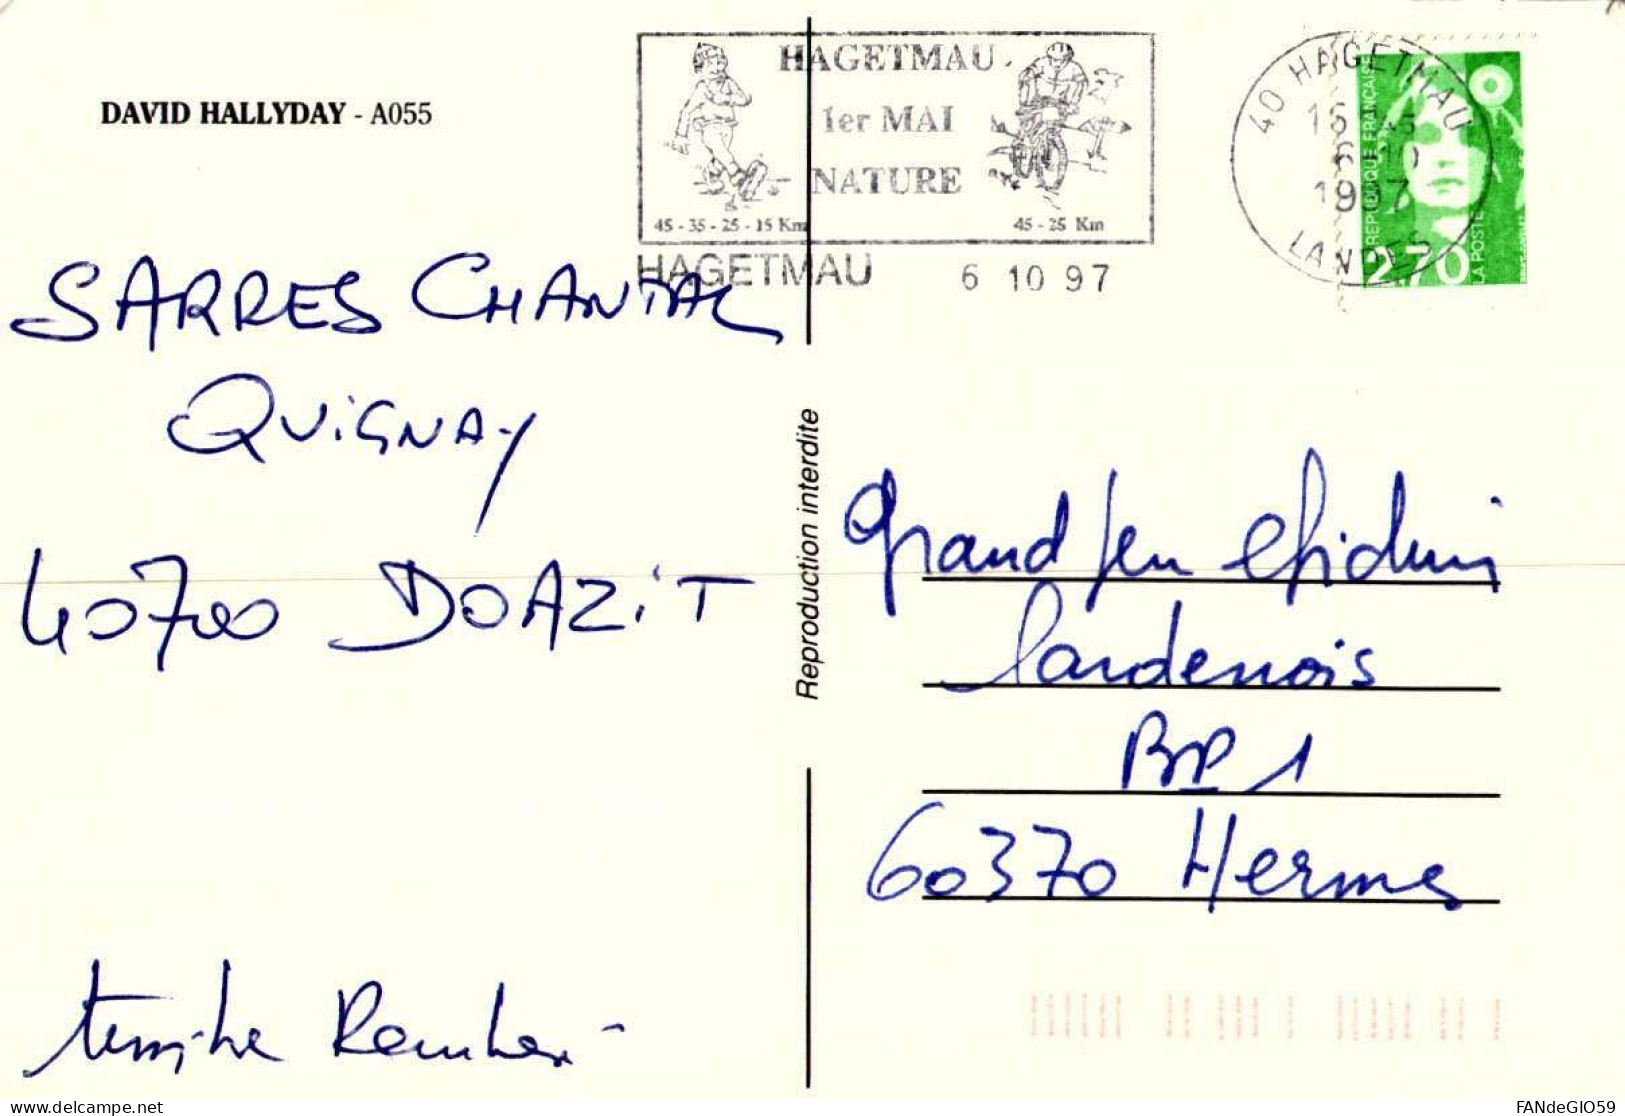 DAVID HALLYDAY - A055
HAGETMAU
1er MAI
NATURE
45 - 35 - 25 - 15 Km
45 - 25 Km
HAGETMAU 6 10 97
40 HAGETMAU
1997
LANDES
REPUBLIQUE FRANÇAISE
LA POSTE
2,70
SARRES CHANTAL
QUIGNAY
40700 DOAZIT
timbre Rembou
Reproduction interdite
Grand Jeu
BP 1
60370 Hermes
FANdeGIO59